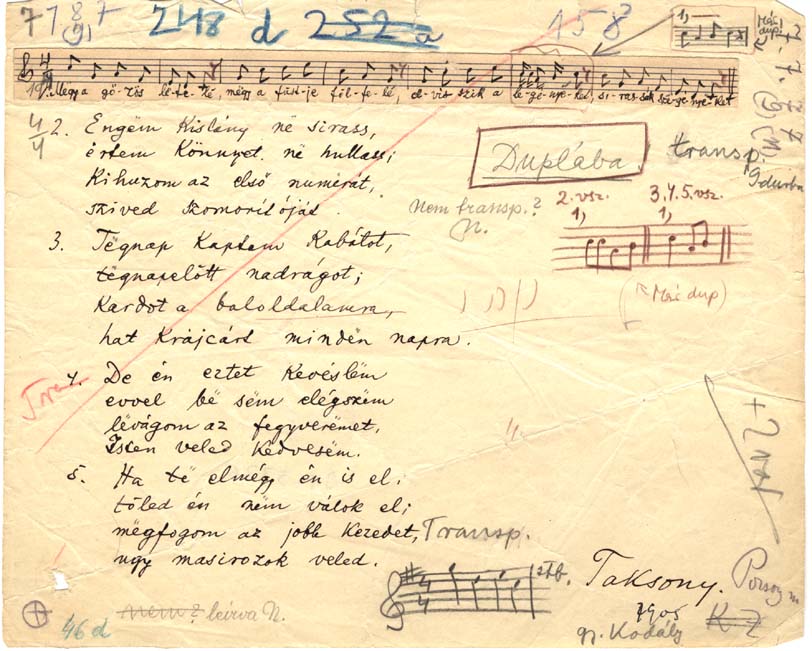 248 d 252 a
1,
Mëgy a gő-zös lë-fe-lé, mëgy a füst-je föl-fe-lé, el-vis-szik a le-gé-nye-ket, si-ras-sák
4/4
2. Engëm Kislány në sirass,
értem Könnyet në hullass;
Kihuzom az első numërát,
szived szomoritóját.
3. Tëgnap Kaptam Kabátot,
tëgnapelőtt nadrágot;
Kardot a baloldalamra,
hat Krajcárt mindën napra.
4. De én eztet Kevéslëm
evvel bë sëm elégszëm
lëvágom az fegyverëmet,
Isten veled Kedvesëm.
5. Ha të elmégy én is el;
tőled én nëm válok el;
mëgfogom az jobb Kezedet,
ugy masirozok veled.
Duplába. transp.
Nem transp.?
N.
2. vsz. 3.4.5. vsz.
1, 1,
(Mái dup)
Transp.
stb.
Taksony.
1905
gy. Kodály
K Z
nem? leírva N.
46 d